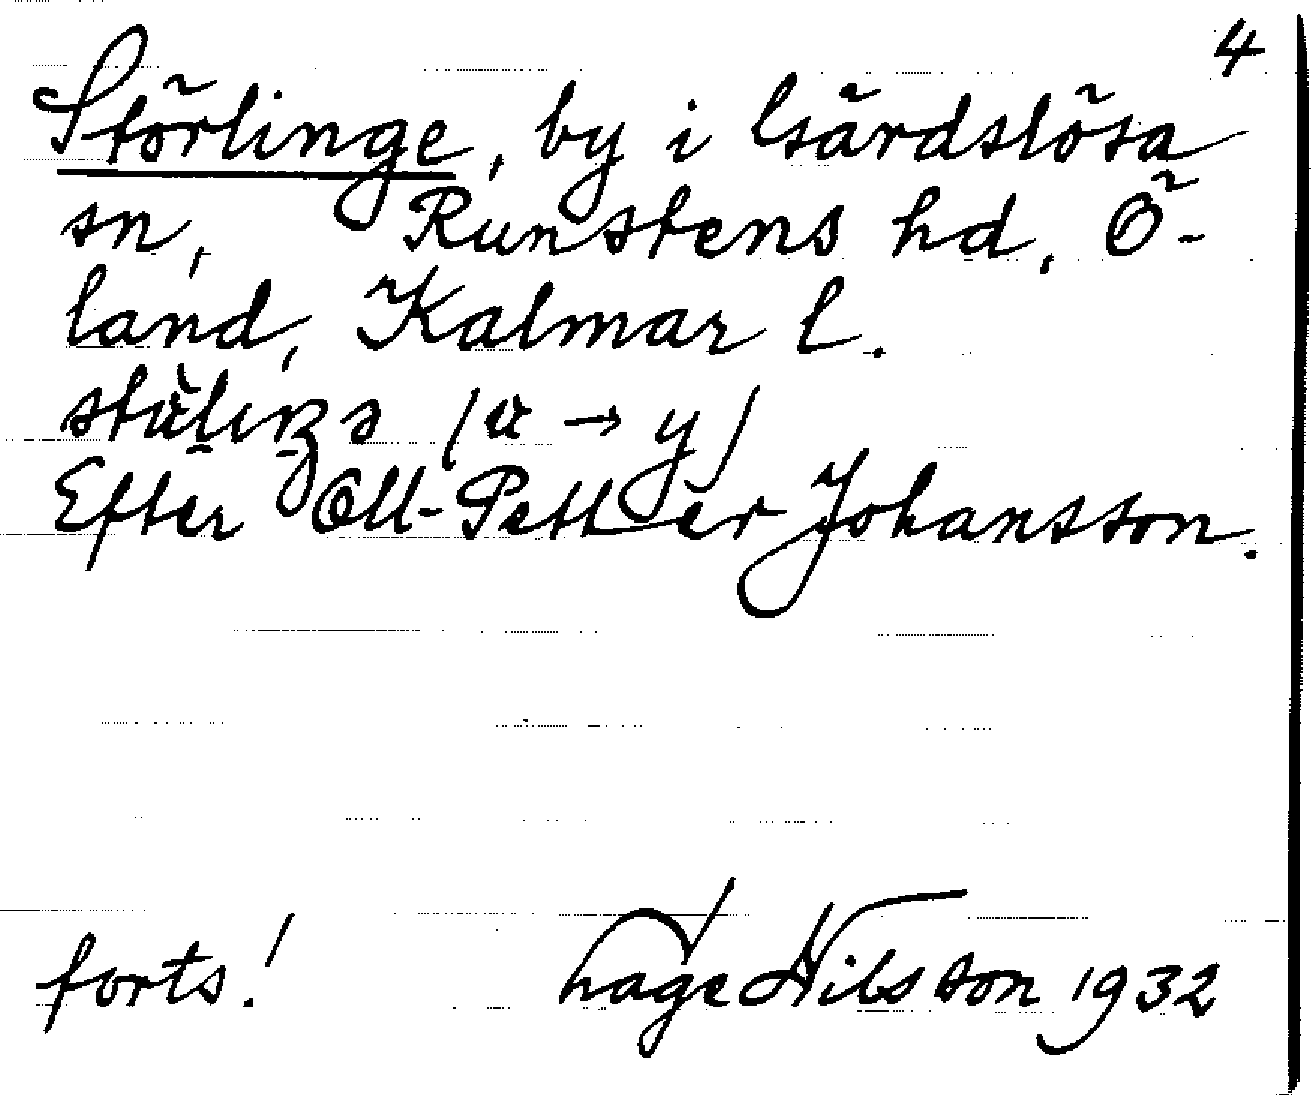 4
Störlinge, by i Gärdslösa
sn, Runstens hd, Ö-
land, Kalmar l.
Efter Oll-Petter Johansson.
forts! Hage Nilsson 1932